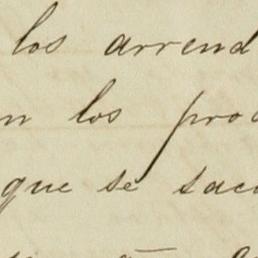 los arrend
n los prod
que se saca